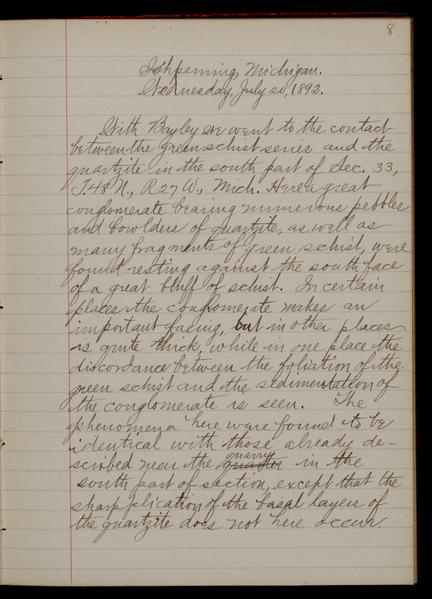 8
Ishpeming, Michigan.
Wednesday, July 20, 1892.
With Bayley we went to the contact
between the green schist series and the
quartzite in the south part of Sec. 33,
T. 48 N., R 27 W., Mich. Here a great
conglomerate bearing numerous pebbles
and bowlders of quartzite, as well as
many fragments of green schist, were
found resting against the south face
of a great bluff of schist. In certain
places the conglomerate makes an
important facing, but in other places
is quite thick, while in one place the
discordance between the foliation of the
green schist and the sedimentation of
the conglomerate is seen. The
phenomena here were found to be
identical with those already de-
scribed near the quarry in the
south part of section, except that the
sharp plication of the basal layers of
the quartzite does not here occur.